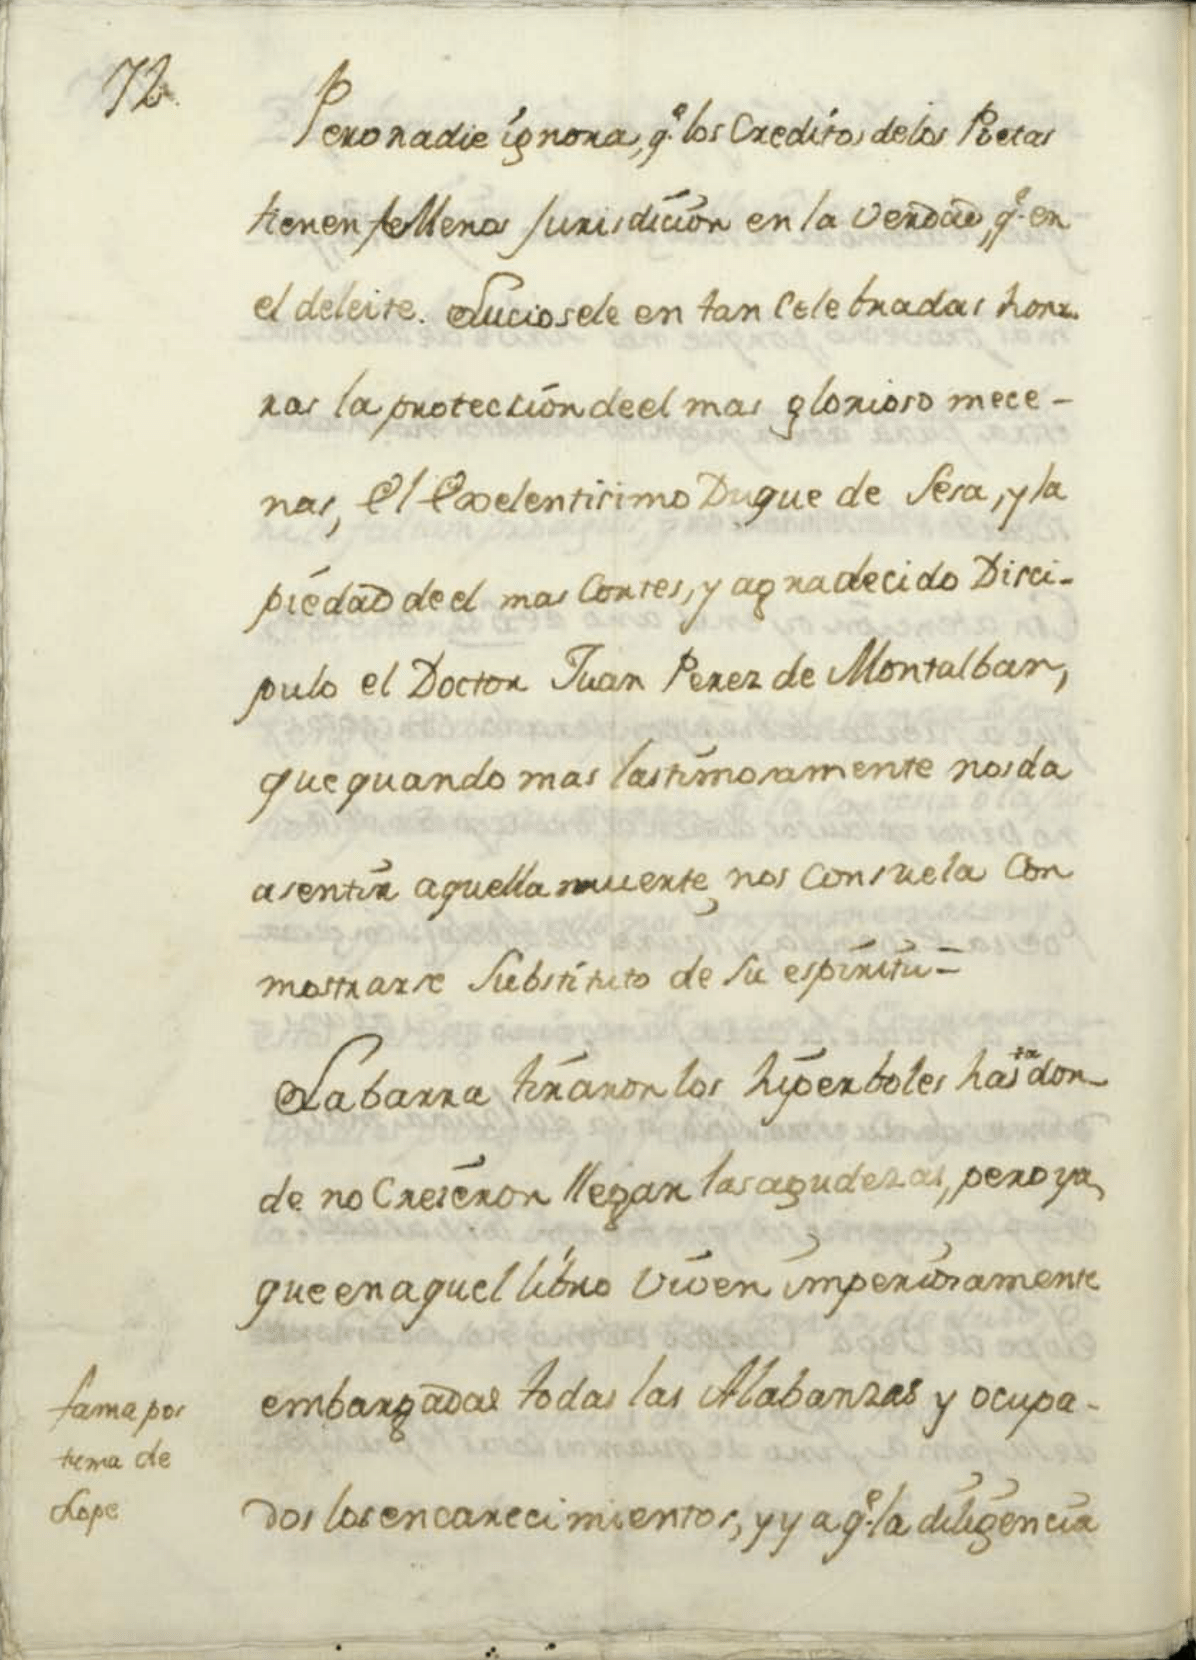 72
Pero nadie ignora, q.e los Creditos de los Poetas
tienen fe llena Jurisdición en la Verdad, q.e en
el deleite. Luciosele en tan Celebradas honr.
ras la protección de el mas glorioso mece-
nas, El Exelentisimo Duque de Sesa, y la
piedad de el mas Cortes, y agradecido Disci-
pulo el Doctor Juan Perez de Montalban,
que quando mas lastimosamente nos da
a sentir aquella muerte nos Consuela Con
mostrarse Substituto de su espiritu=
La barra tiraron los hiperboles hasta don
de no Creieron llegar las agudezas, pero ya
que en aquel libro Viven imperiosamente
embargadas todas las Alabanzas y ocupa-
dos los encarecimientos, y ya q.e la diligencia
fama pos
tuma de
Lope